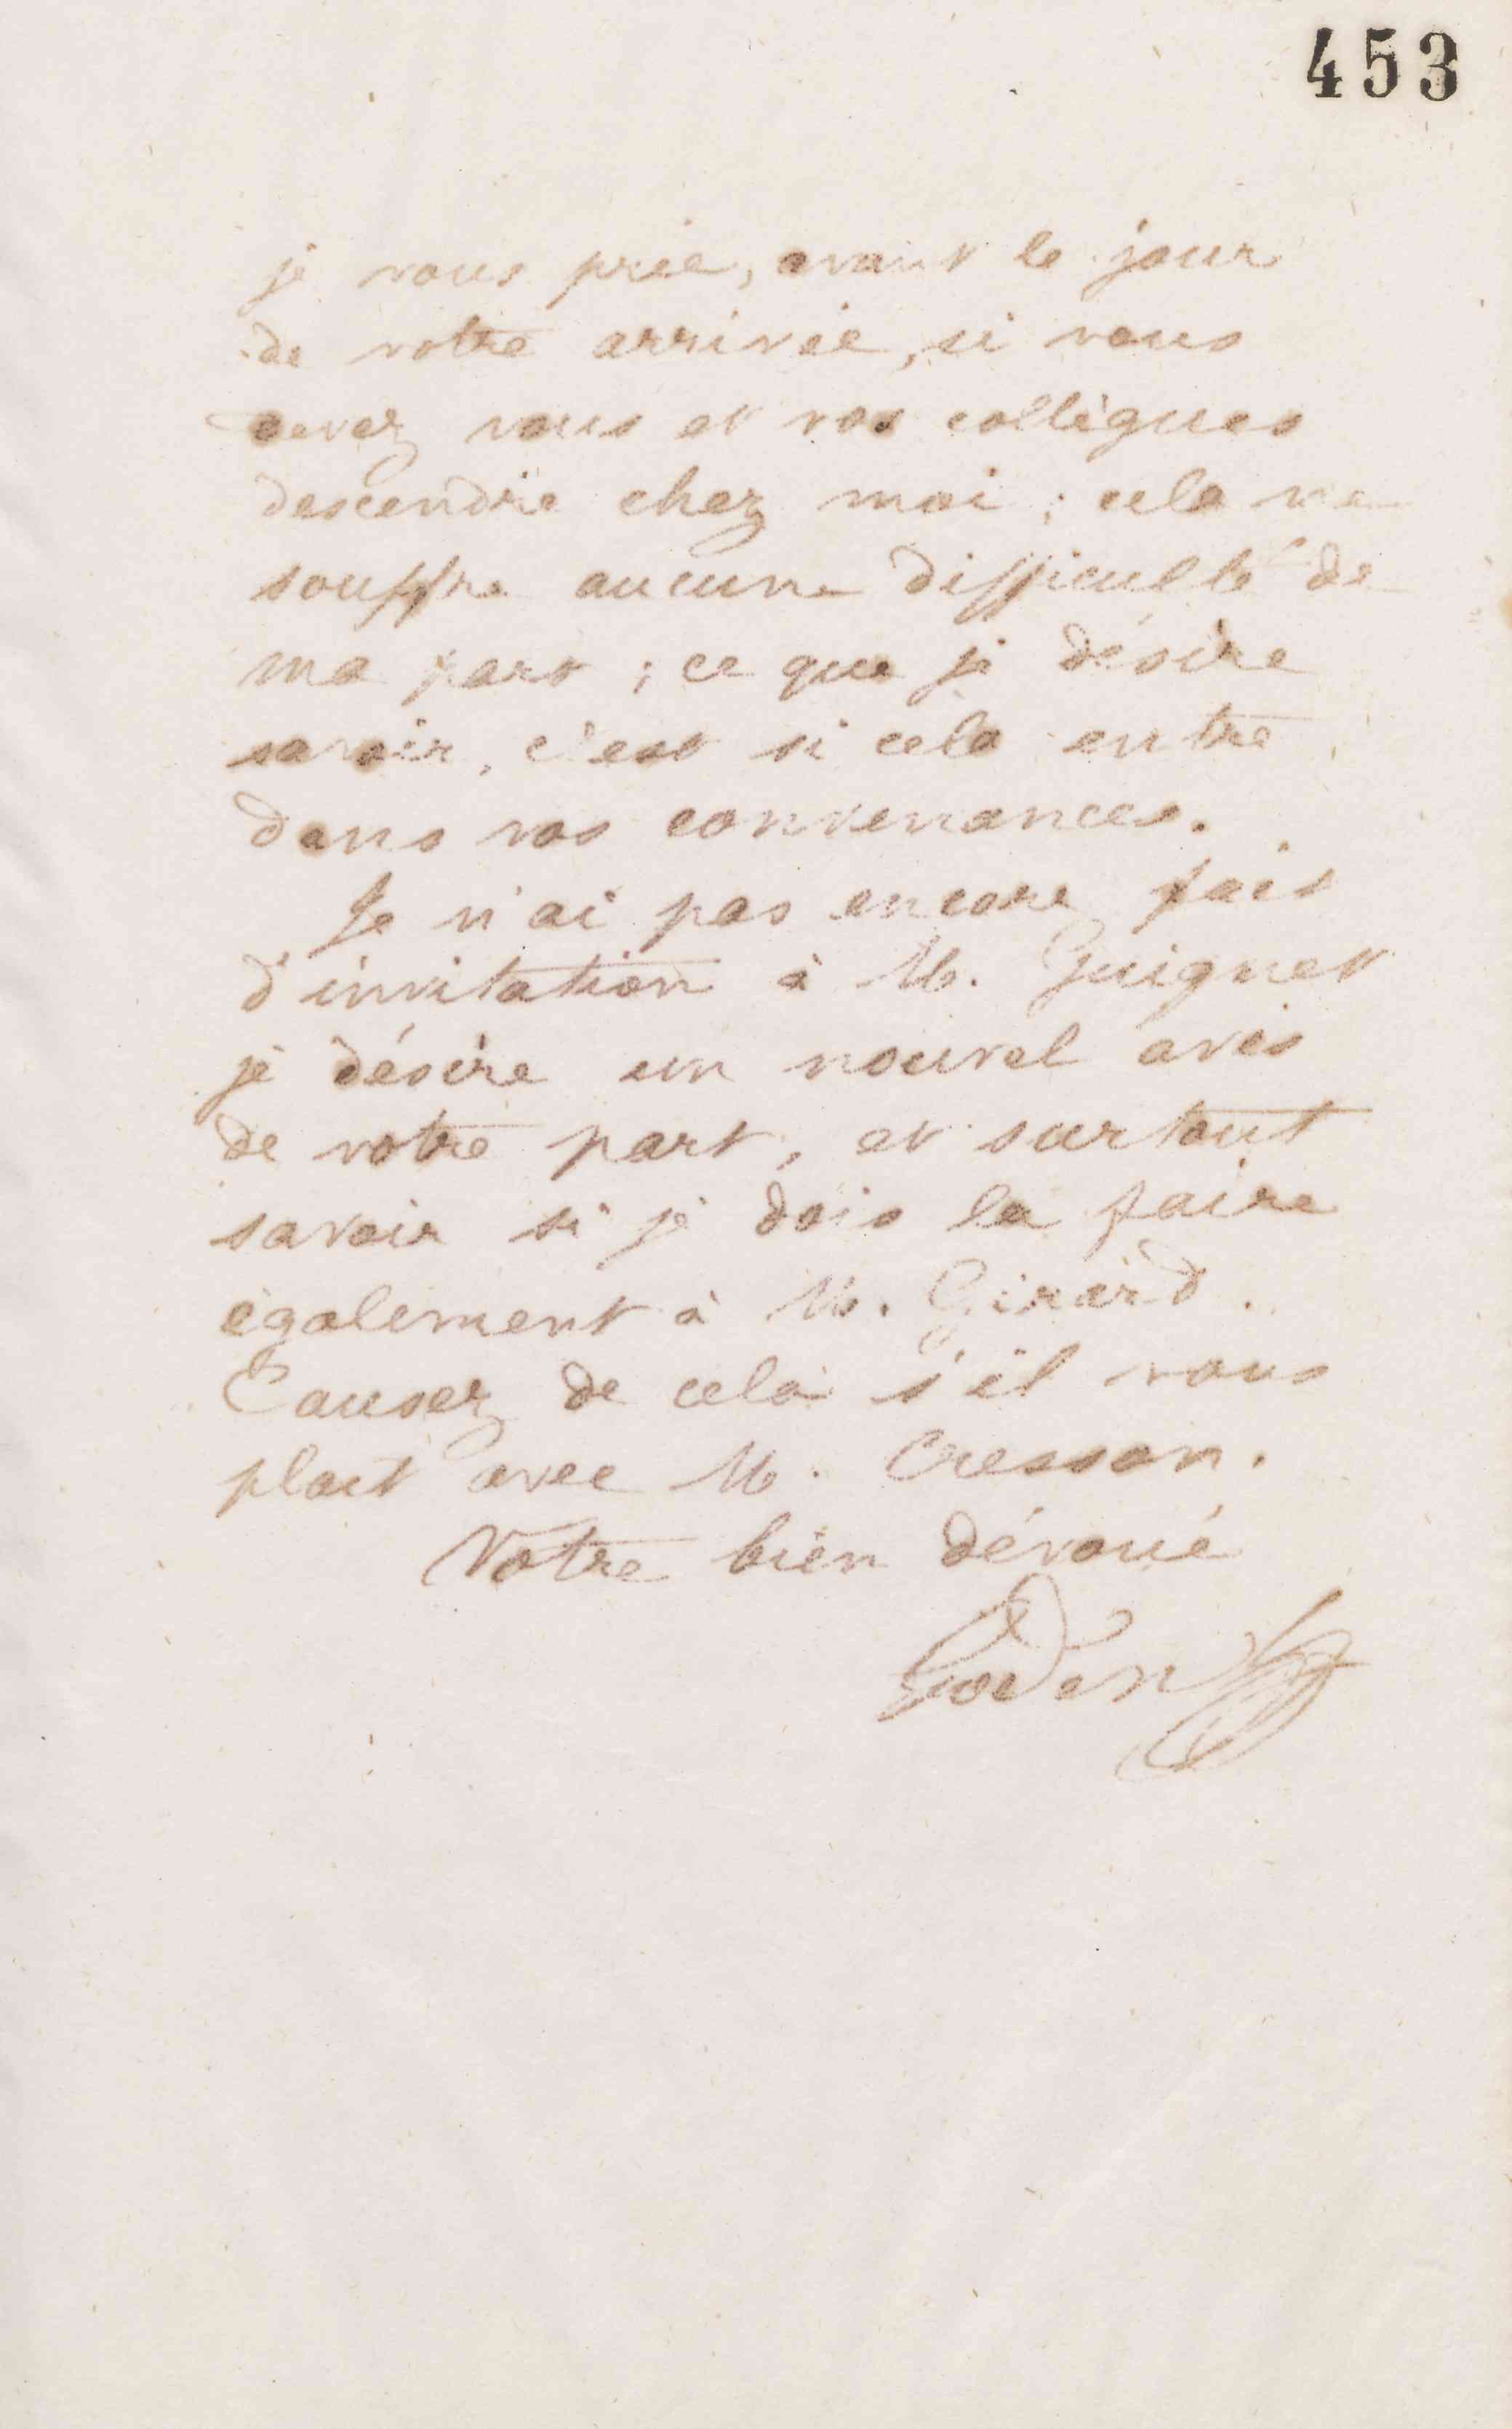 453
je vous prie, avant le jour
de votre arrivée, si vous
devez vous et vos collègues
descendre chez moi ; cela ne
souffre aucune difficulté de
ma part ; ce que je désire
savoir, c'est si cela entre
dans vos convenances.
Je n'ai pas encore fait
d'invitation à M. Guignet
je désire un nouvel avis
de votre part, et surtout
savoir si je dois la faire
également à M. Girard.
Causez de cela s'il vous
plait avec M. Cresson.
Votre bien dévoué
Godin